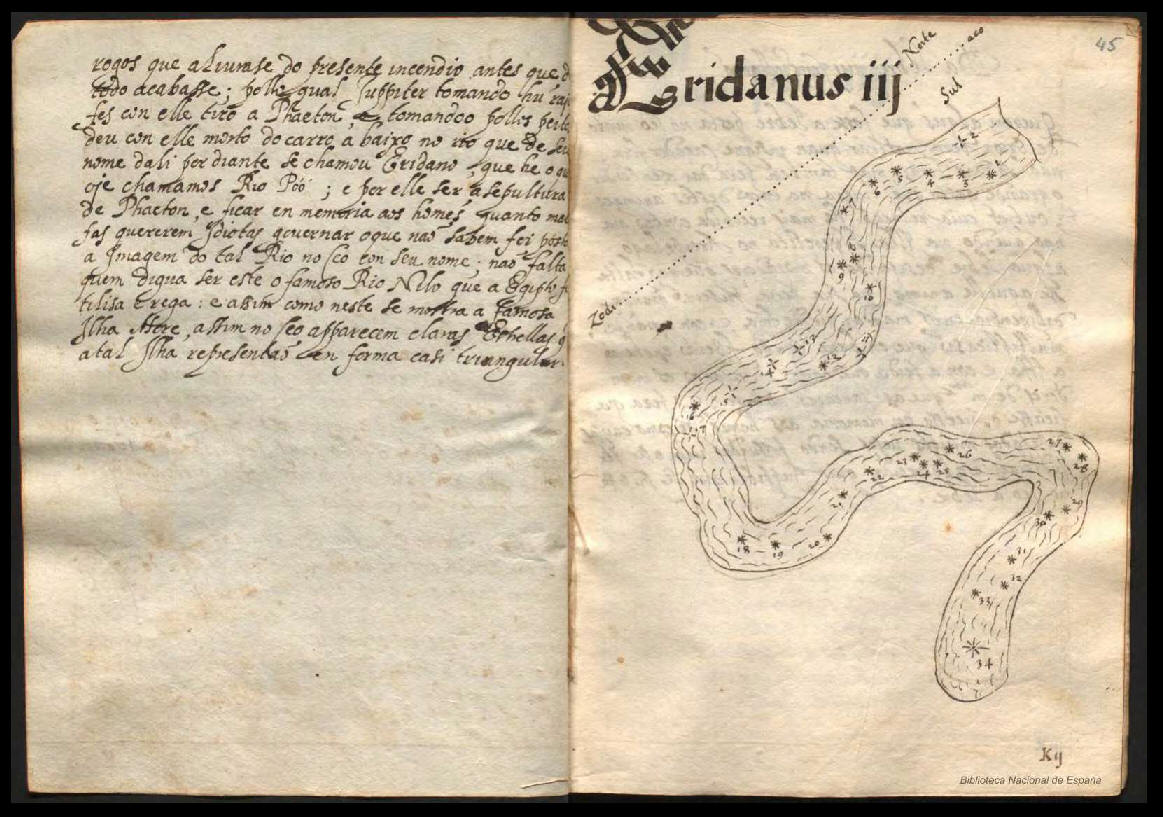 rogos que a livrase do presente incendio antes que
todo acabasse; pollo qual Juppiter tomando hũ
fes con elle tiro a Phaeton, e tomandoo pollos
deu con elle morto do carro a baixo no rio que de seu
nome dali por diante se chamou Eridano, que he o
oje chamamos Rio Póo; e por elle ser a sepultura
de Phaeton, e ficar en memoria aos homẽs quanto
sas quererem Idiotas governar o que naõ sabem foi
a Imagem do tal Rio no Ceo con seu nome. naõ falta
quem digua ser este o famoso Rio Nilo que a Egipto
tilisa e rega: e assim como neste se mostra a famosa
Ilha Meroe, assim no Ceo apparecem claras Estrellas
a tal Ilha representaõ en forma casi triangular.
45
Eridanus iij
Norte
Sul
Zodi aco
1
2
3
4
5
6
7
8
9
10
11
12
13
14
15
16
17
18
19
20
21
22
23
24
25
26
27
28
29
30
31
32
33
34
Kij
Biblioteca Nacional de España